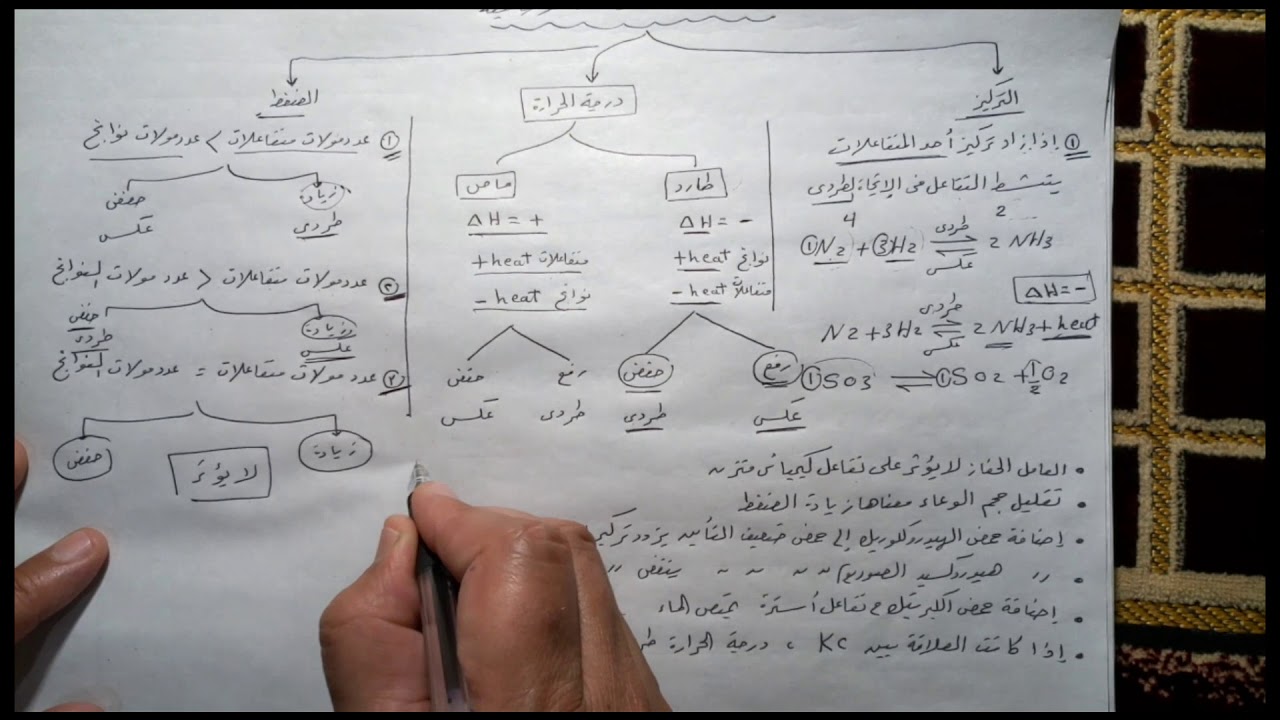 التركيز
① إذا زاد تركيز أحد المتفاعلات
ينشط التفاعل فى الإتجاه الطردى
4 2
①N2 + ③H2 طردى ⇌ عكس 2 NH3
ΔH = -
N2 + 3H2 طردى ⇌ عكس 2 NH3 + heat
①SO3 ⇌ ①SO2 + 1/2 O2
درجة الحرارة
طارد
ΔH = -
نواتج +heat
متفاعلات -heat
رفع خفض
عكس طردى
ماص
ΔH = +
متفاعلات +heat
نواتج -heat
رفع خفض
طردى عكس
الضغط
① عدد مولات متفاعلات > عدد مولات نواتج
زيادة خفض
طردى عكس
② عدد مولات متفاعلات < عدد مولات النواتج
زيادة خفض
عكس طردى
③ عدد مولات متفاعلات = عدد مولات النواتج
زيادة خفض
لا يؤثر
• العامل الحفاز لا يؤثر على تفاعل كيميائى متزن
• تقليل حجم الوعاء معناها زيادة الضغط
• إضافة حمض الهيدروكلوريك إلى حمض ضعيف التأين يزود تركيز
• 〃 هيدروكسيد الصوديوم 〃 〃 〃 〃 ينقص 〃
• إضافة حمض الكبريتيك فى تفاعل أسترة يمتص الماء
• إذا كانت العلاقة بين Kc ، درجة الحرارة